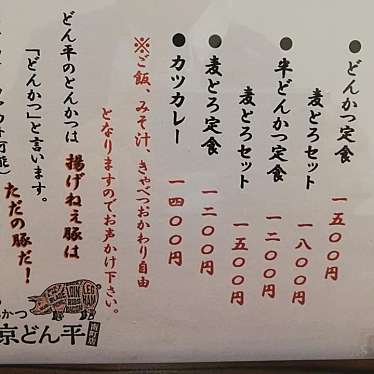 ●どんかつ定食 一五〇〇円
麦とろセット 一八〇〇円
●半どんかつ定食 一二〇〇円
麦とろセット 一五〇〇円
●麦とろ定食 一二〇〇円
●カツカレー 一四〇〇円
※ご飯、みそ汁、きゃべつおかわり自由
となりますのでお声かけ下さい。
どん平のとんかつは揚げねぇ豚は
ただの豚だ!
「どんかつ」と言います。
かつ
京どん平
南町店
LOIN
RIBS
LEG
HAM